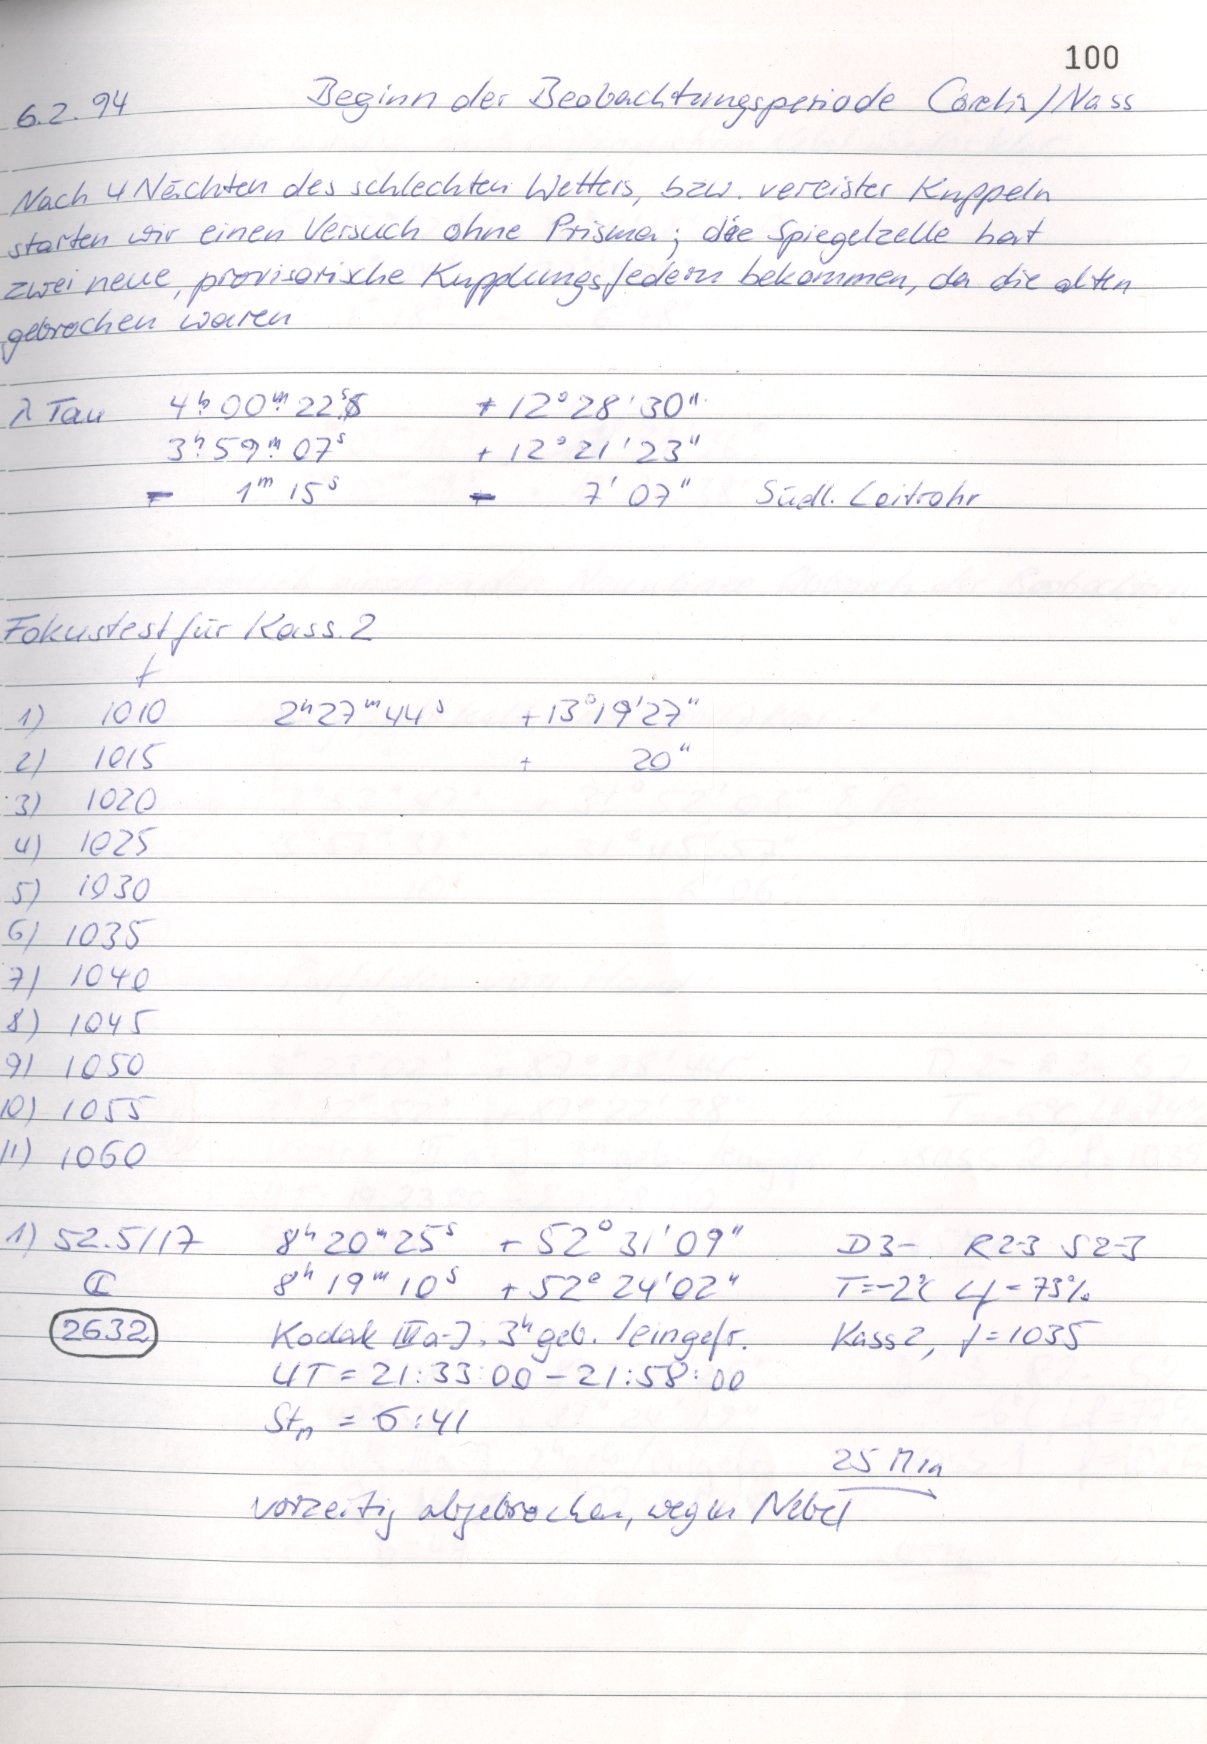 100
6.2.94 Beginn der Beobachtungsperiode Cordis/Nass
Nach 4 Nächten des schlechten Wetters, bzw. vereister Kuppeln
starten wir einen Versuch ohne Prisma; die Spiegelzelle hat
zwei neue, provisorische Kupplungsfedern bekommen, da die alten
gebrochen waren
λ Tau 4ʰ 00ᵐ 22ˢ + 12° 28' 30"
3ʰ 59ᵐ 07ˢ + 12° 21' 23"
- 1ᵐ 15ˢ - 7' 07" Südl. Leitrohr
Fokustest für Kass. 2
f
1) 1010 2ʰ 27ᵐ 44ˢ + 13° 19' 27"
2) 1015 + 20"
3) 1020
4) 1025
5) 1030
6) 1035
7) 1040
8) 1045
9) 1050
10) 1055
11) 1060
1) 52.5/17 8ʰ 20ᵐ 25ˢ + 52° 31' 09" D3- R2-3 S2-3
8ʰ 19ᵐ 10ˢ + 52° 24' 02" T=-2°C Lf=73%
2632 Kodak IIIa-J, 3ʰ geb. /eingefr. Kass2, f=1035
UT = 21:33:00 - 21:58:00
Stₙ = 6:41
25 Min
vorzeitig abgebrochen, wegen Nebel